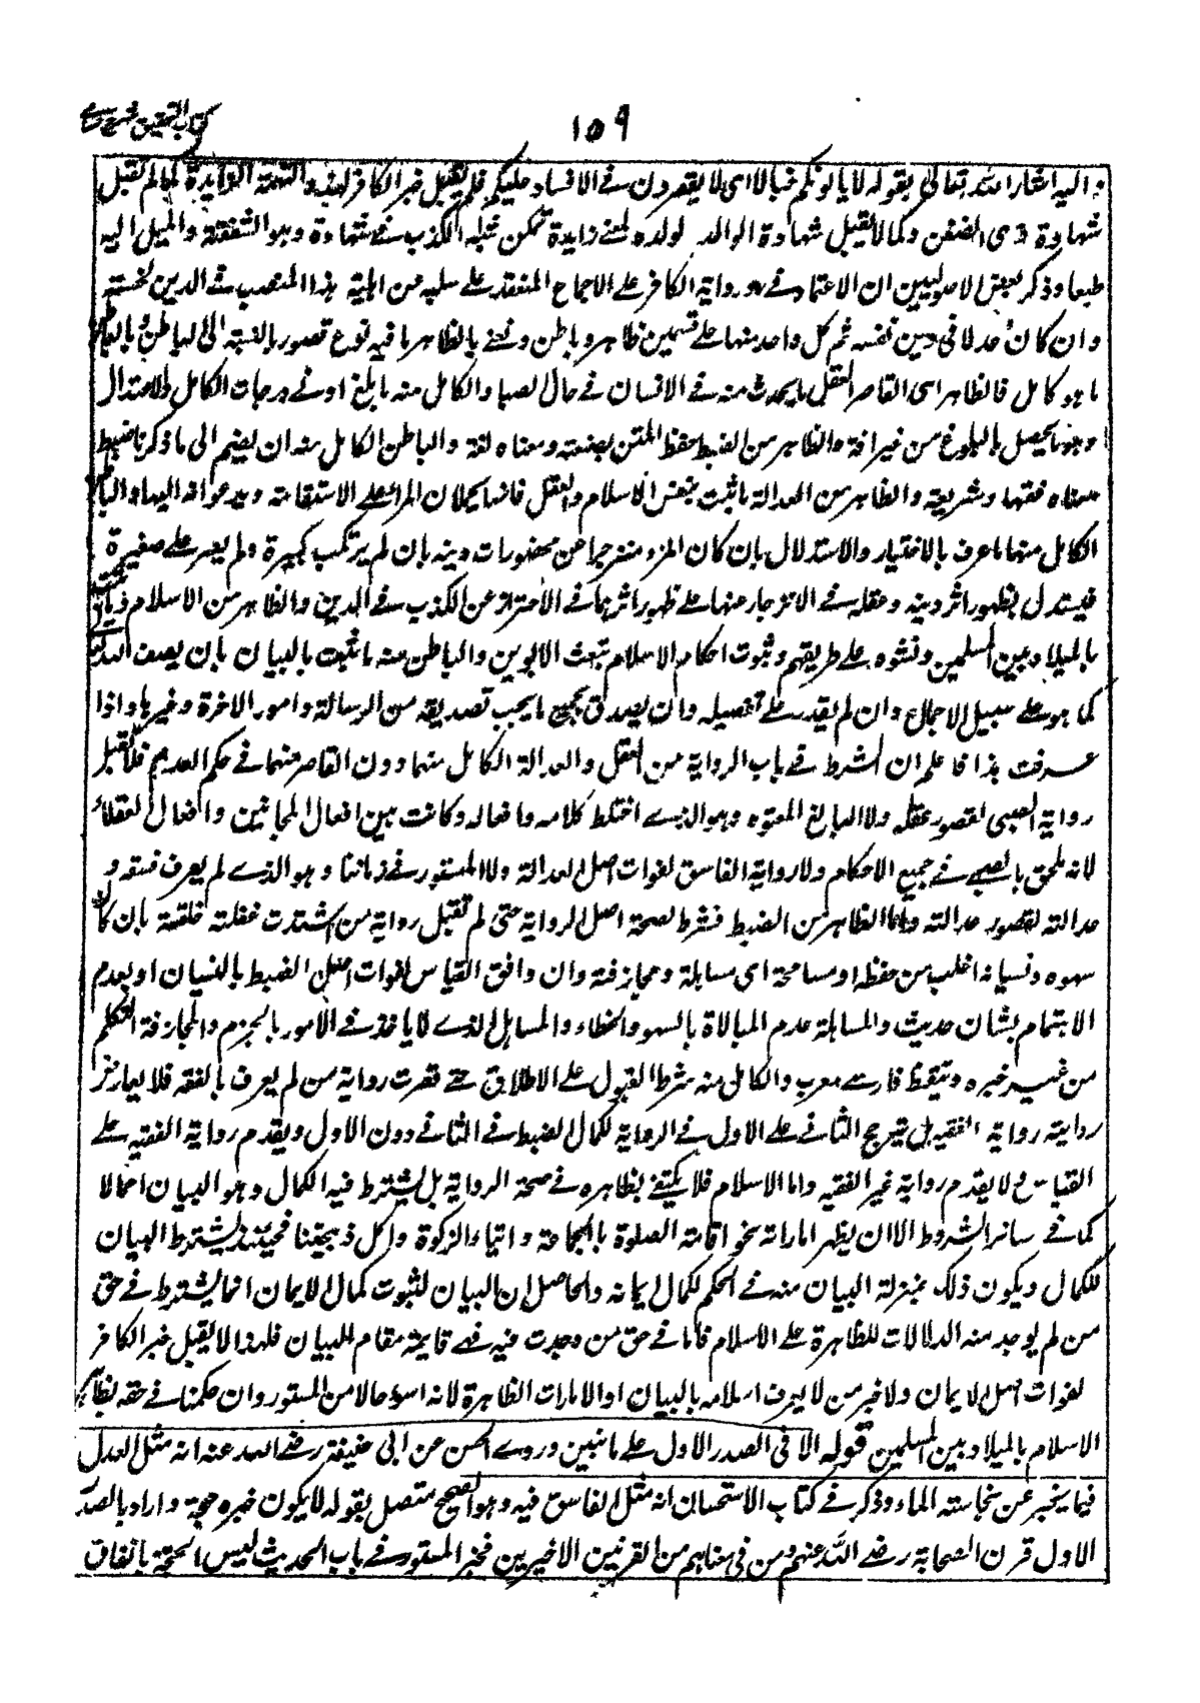 ١٥٩
كتاب التحقيق شرح حسامي
واليه اشار الله تعالى بقوله لا يالونكم خبالا اى لا يقصرون فى الافساد عليكم فلم يقبل خبر الكافر لهذه التهمة الزايدة كما لم تقبل
شهادة ذى الضغن وكما لا تقبل شهادة الوالد لولده لمعنى زايدة تمكن تهمة الكذب فى شهادة وهو الشفقة والميل اليه
طبعا وذكر بعض الاصوليين ان الاعتماد فى رد رواية الكافر على الاجماع المنعقد على سلبه من اهلية هذا المنصب فى الدين لخسته
وان كان عدلا فى دين نفسه ثم كل واحد منها على قسمين ظاهر وباطن ونعنى بالظاهر ما فيه نوع قصور بالنسبة الى الباطن وبالباطن
ما هو كامل فالظاهر اى القاصر من العقل ما يحدث منه فى الانسان فى حال الصبا والكامل منه ما بلغ ادنى درجات الكمال والاعتدال
وهو ما يحصل بالبلوغ من غير افة والظاهر من الضبط حفظ المتن بصيغته ومعناه لغة والباطن الكامل منه ان يضم الى ما ذكرنا ضبط
معناه فقها وشريعة والظاهر من العدالة ما ثبت بنفس الاسلام والعقل فانهما يحملان المرأ على الاستقامة ويدعوانه اليها والباطن
الكامل منها ما عرف بالاختيار والاستدلال بان كان المرؤ منزجرا عن محضورات دينه بان لم يرتكب كبيرة ولم يصر على صغيرة
فيستدل بظهور اثر دينه وعقله فى الانزجار عنها على ظهور اثرهما فى الاحتراز عن الكذب فى الدين والظاهر من الاسلام ما ثبت
بالميلاد بين المسلمين ونشوه على طريقهم وثبوت احكام الاسلام بتبعية الابوين والباطن منه ما ثبت بالبيان بان يصف الله
كما هو على سبيل الاجمال وان لم يقدر على تفصيله وان يصدق بجميع ما يجب تصديقه من الرسالة وامور الاخرة وغيرها واذا
عرفت هذا فاعلم ان الشرط فى باب الرواية من العقل والعدالة الكامل منهما دون القاصر منهما فى حكم العدم فلا تقبل
رواية الصبى لقصور عقله ولا البالغ المعتوه وهو الذى اختلط كلامه وافعاله وكانت بين افعال المجانين وافعال العقلاء
لانه ملحق بالصبى فى جميع الاحكام ولا رواية الفاسق لفوات اصل العدالة ولا المستور فى زماننا وهو الذى لم يعرف فسقه و
عدالته لقصور عدالته واما الظاهر من الضبط فشرط لصحة اصل الرواية حتى لم تقبل رواية من اشتدت غفلته خلقة بان كان
سهوه ونسيانه اغلب من حفظه او مسامحة اى مساهلة ومجازفة وان وافق القياس لفوات اصل الضبط بالنسيان او بعدم
الاهتمام بشان حديث والمساهلة عدم المبالاة بالسهو والخطاء والمساهل الذى لا ياخذ فى الامور بالجزم والمجازفة التكلم
من غير خبره وتيقظ فارسى معرب والكامل منه شرط القبول على الاطلاق حتى قصرت رواية من لم يعرف بالفقه فلا يعارض
روايته رواية الفقيه بل ترجح الثانى على الاول فى الرعاية لكمال الضبط فى الثانى دون الاول ويقدم رواية الفقيه على
القياس ولا يقدم رواية غير الفقيه واما الاسلام فلا يكتفى بظاهره فى صحة الرواية بل يشترط فيه الكمال وهو البيان اجمالا
كما فى سائر الشروط الا ان يظهر اماراته نحو اقامة الصلوة بالجماعة وايتاء الزكوة واكل ذبيحتنا فحينئذ لا يشترط البيان
للكمال ويكون ذلك بمنزلة البيان منه فى الحكم لكمال ايمانه والحاصل ان البيان لثبوت كمال الايمان انما يشترط فى حق
من لم يوجد منه الدلالات الظاهرة على الاسلام فاما فى حق من وجدت فيه فهى قايمة مقام البيان فلهذا لا يقبل خبر الكافر
لفوات اصل الايمان ولا خبر من لا يعرف اسلامه بالبيان او الامارات الظاهرة لانه اسوء حالا من المستور وان حكمنا فى حقه بظاهر
الاسلام بالميلاد بين المسلمين قوله الا فى الصدر الاول على ما نبين وروى الحسن عن ابى حنيفة رضى الله عنه انه مثل العدل
فيما يخبر عن نجاسة الماء وذكر فى كتاب الاستحسان انه مثل الفاسق فيه وهو الصحيح متصل بقوله لا يكون خبره حجة واراد بالصدر
الاول قرن الصحابة رضى الله عنهم ومن فى معناهم من القرنين الاخيرين فخبر المستور فى باب الحديث ليس الحجة باتفاق